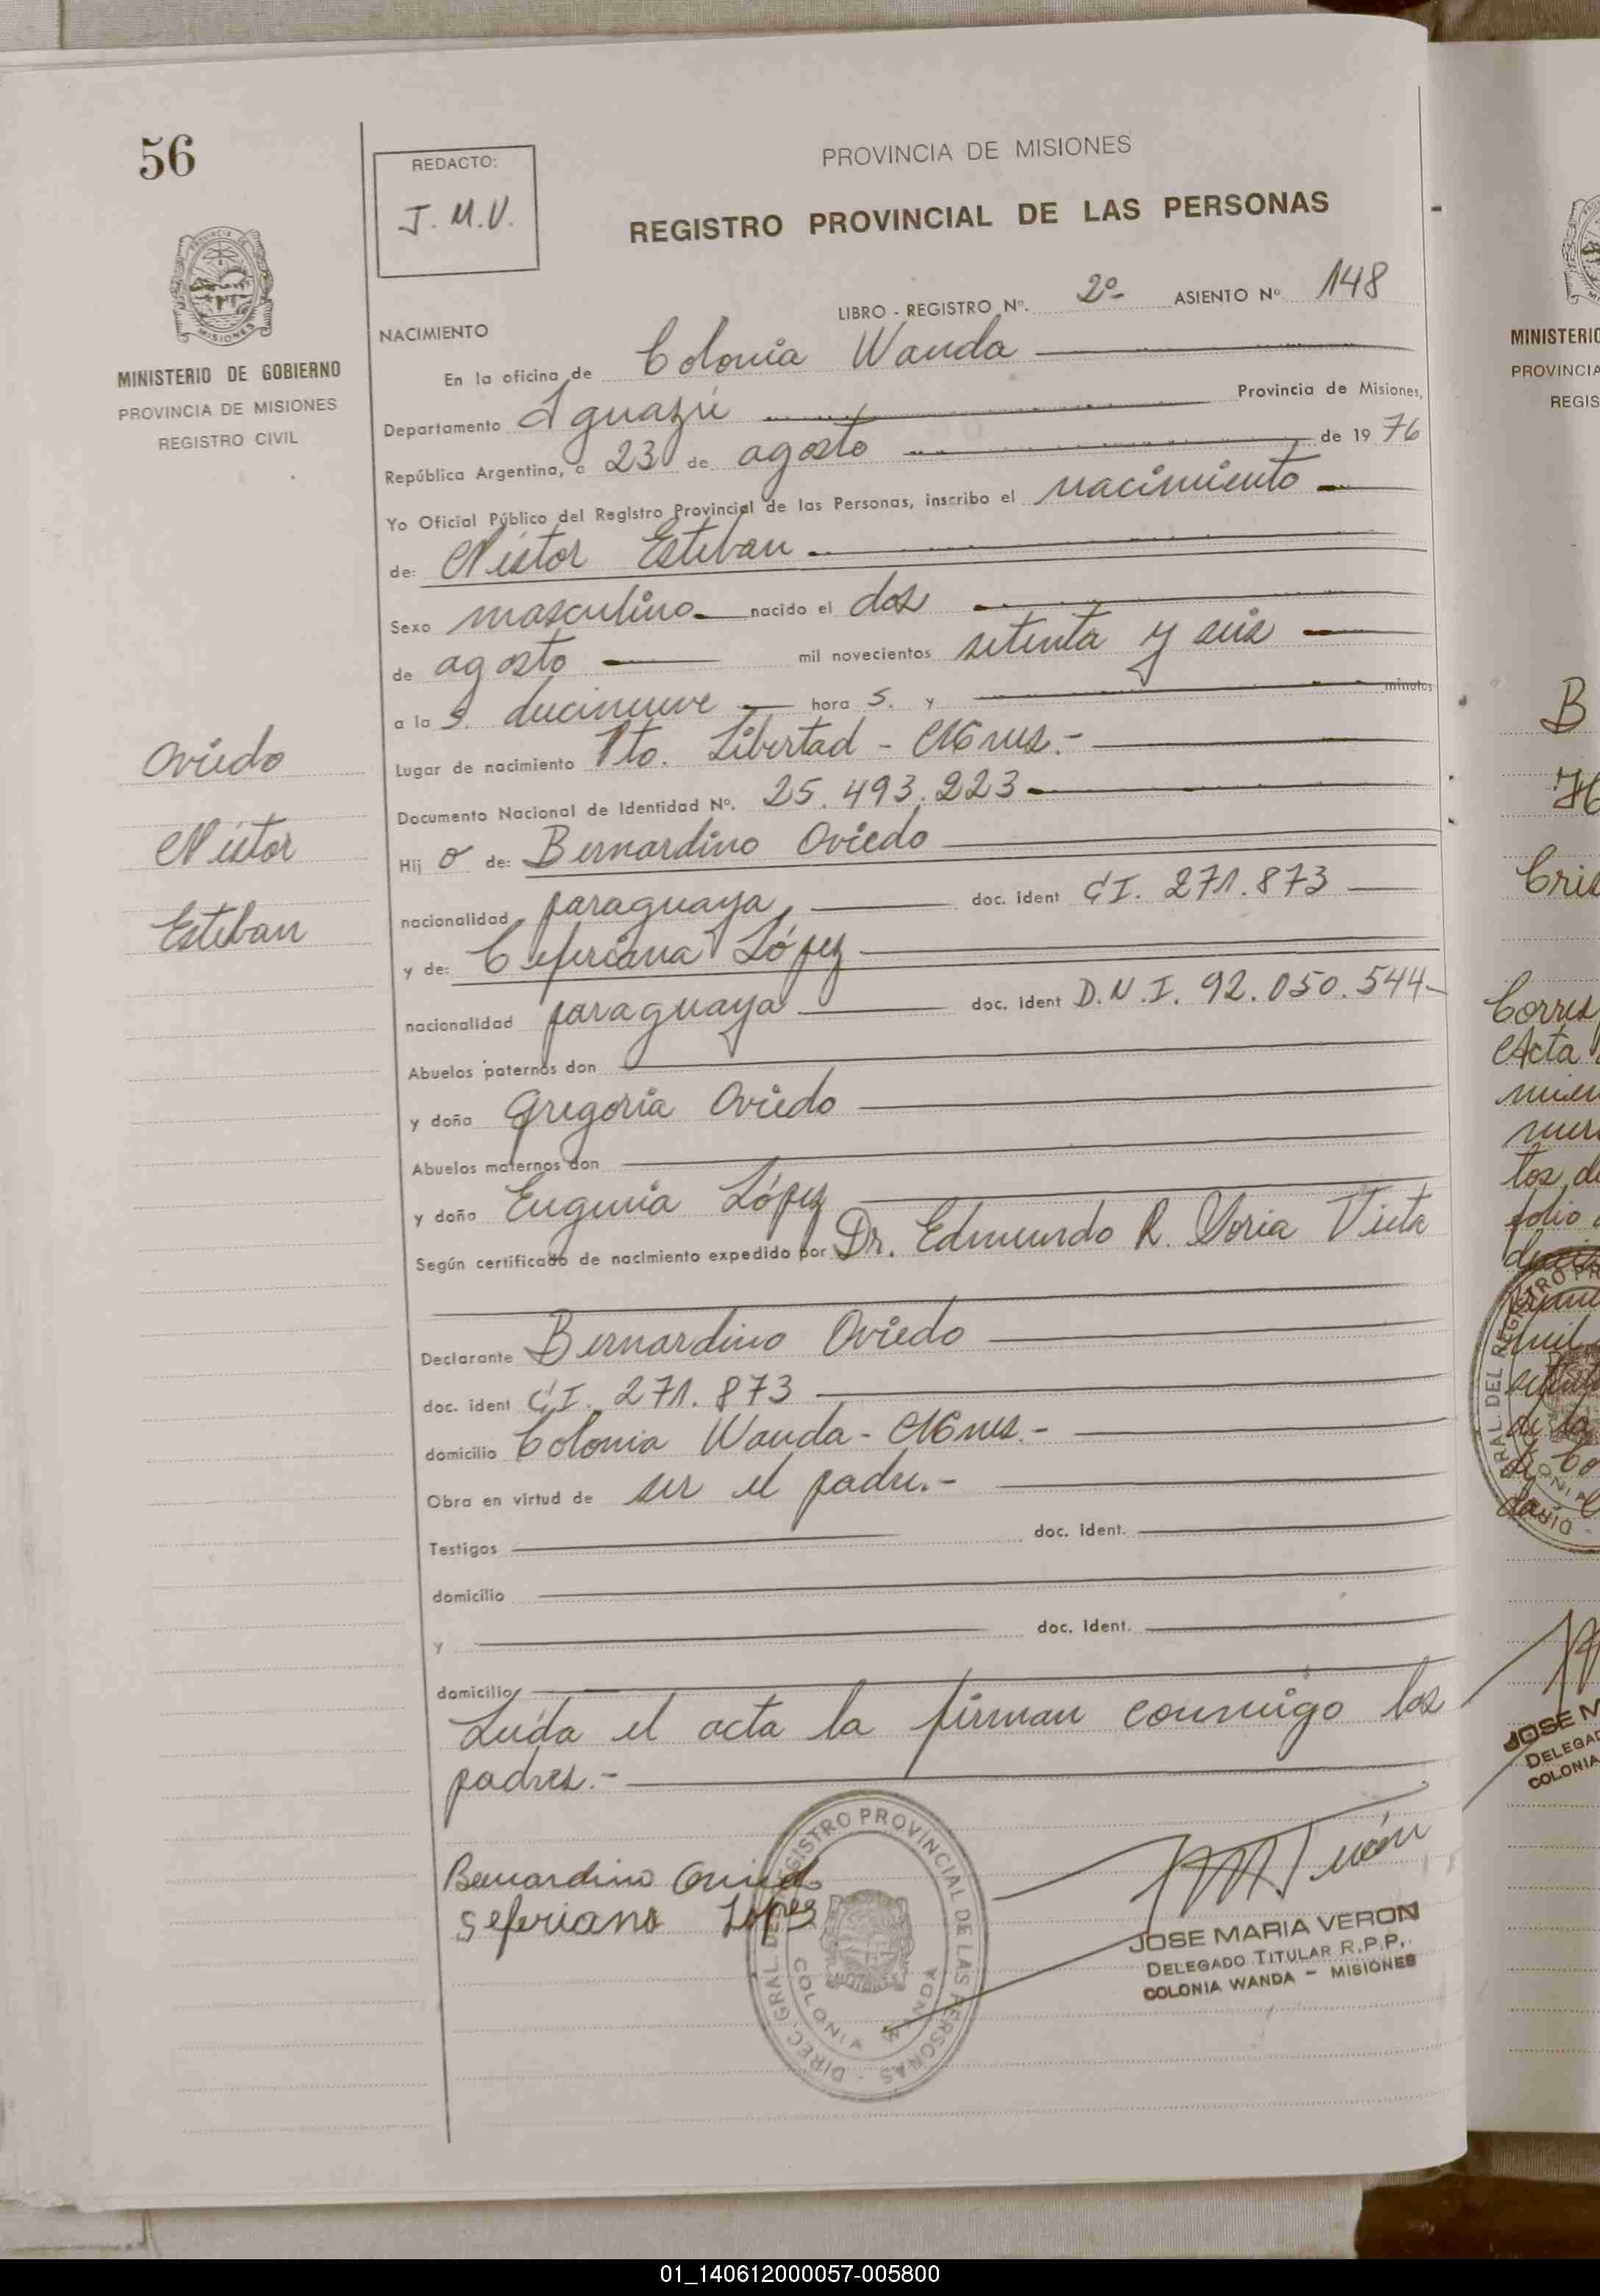 56
REDACTO:
J. M. V.
PROVINCIA DE MISIONES
REGISTRO PROVINCIAL DE LAS PERSONAS
LIBRO - REGISTRO Nº. 2º ASIENTO Nº 148
MINISTERIO DE GOBIERNO
PROVINCIA DE MISIONES
REGISTRO CIVIL
NACIMIENTO
En la oficina de Colonia Wanda
Departamento Iguazú Provincia de Misiones,
República Argentina, a 23 de agosto de 1976
Yo Oficial Público del Registro Provincial de las Personas, inscribo el nacimiento
de: Néstor Esteban
Sexo masculino nacido el dos
de agosto mil novecientos setenta y seis
a la s. diecinueve hora s. y minutos
Lugar de nacimiento Pto. Libertad - Mnes.-
Documento Nacional de Identidad Nº. 25.493.223
Hij o de: Bernardino Oviedo
nacionalidad paraguaya, doc. ident C.I. 271.873
y de: Ceferiana López
nacionalidad paraguaya doc. ident D.N.I. 92.050.544-
Abuelos paternos don
y doña Gregoria Oviedo
Abuelos maternos don
y doña Eugenia López
Según certificado de nacimiento expedido por Dr. Edmundo R. Soria Vieta
Declarante Bernardino Oviedo
doc. ident C.I. 271.873
domicilio Colonia Wanda - Mnes.-
Obra en virtud de ser el padre.-
Testigos doc. ident.
domicilio
y doc. Ident.
domicilio
Leída el acta la firman conmigo los
padres.-
Oviedo
Néstor
Esteban
Bernardino Ovied
Seferiana Lopes
DIREC. GRAL. DEL REGISTRO PROVINCIAL DE LAS PERSONAS
COLONIA WANDA
JOSE MARIA VERON
DELEGADO TITULAR R.P.P.
COLONIA WANDA - MISIONES
MINISTERIO
PROVINCIA
REGIS
Corres
Acta
01_140612000057-005800